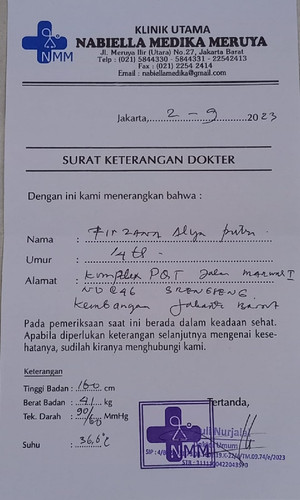 KLINIK UTAMA
NABIELLA MEDIKA MERUYA
Jl. Meruya Ilir (Utara) No.27, Jakarta Barat
Telp : (021) 5844330 - 5844331 - 22542413
Fax : (021) 2254 2414
Email : nabiellamedika@gmail.com
NMM
Jakarta, 2 - 9 2023
SURAT KETERANGAN DOKTER
Dengan ini kami menerangkan bahwa :
Nama : Alya Putri
Umur : 14 th
Alamat : Komplek Jalan
No SRENGSENG
Kembangan Jakarta Barat
Pada pemeriksaan saat ini berada dalam keadaan sehat.
Apabila diperlukan keterangan selanjutnya mengenai kese-
hatanya, sudilah kiranya menghubungi kami.
Keterangan
Tinggi Badan : 160 cm
Berat Badan : 41 kg
Tek. Darah : 90/60 MmHg
Suhu : 36,6°C
Tertanda,
NMM
Umum